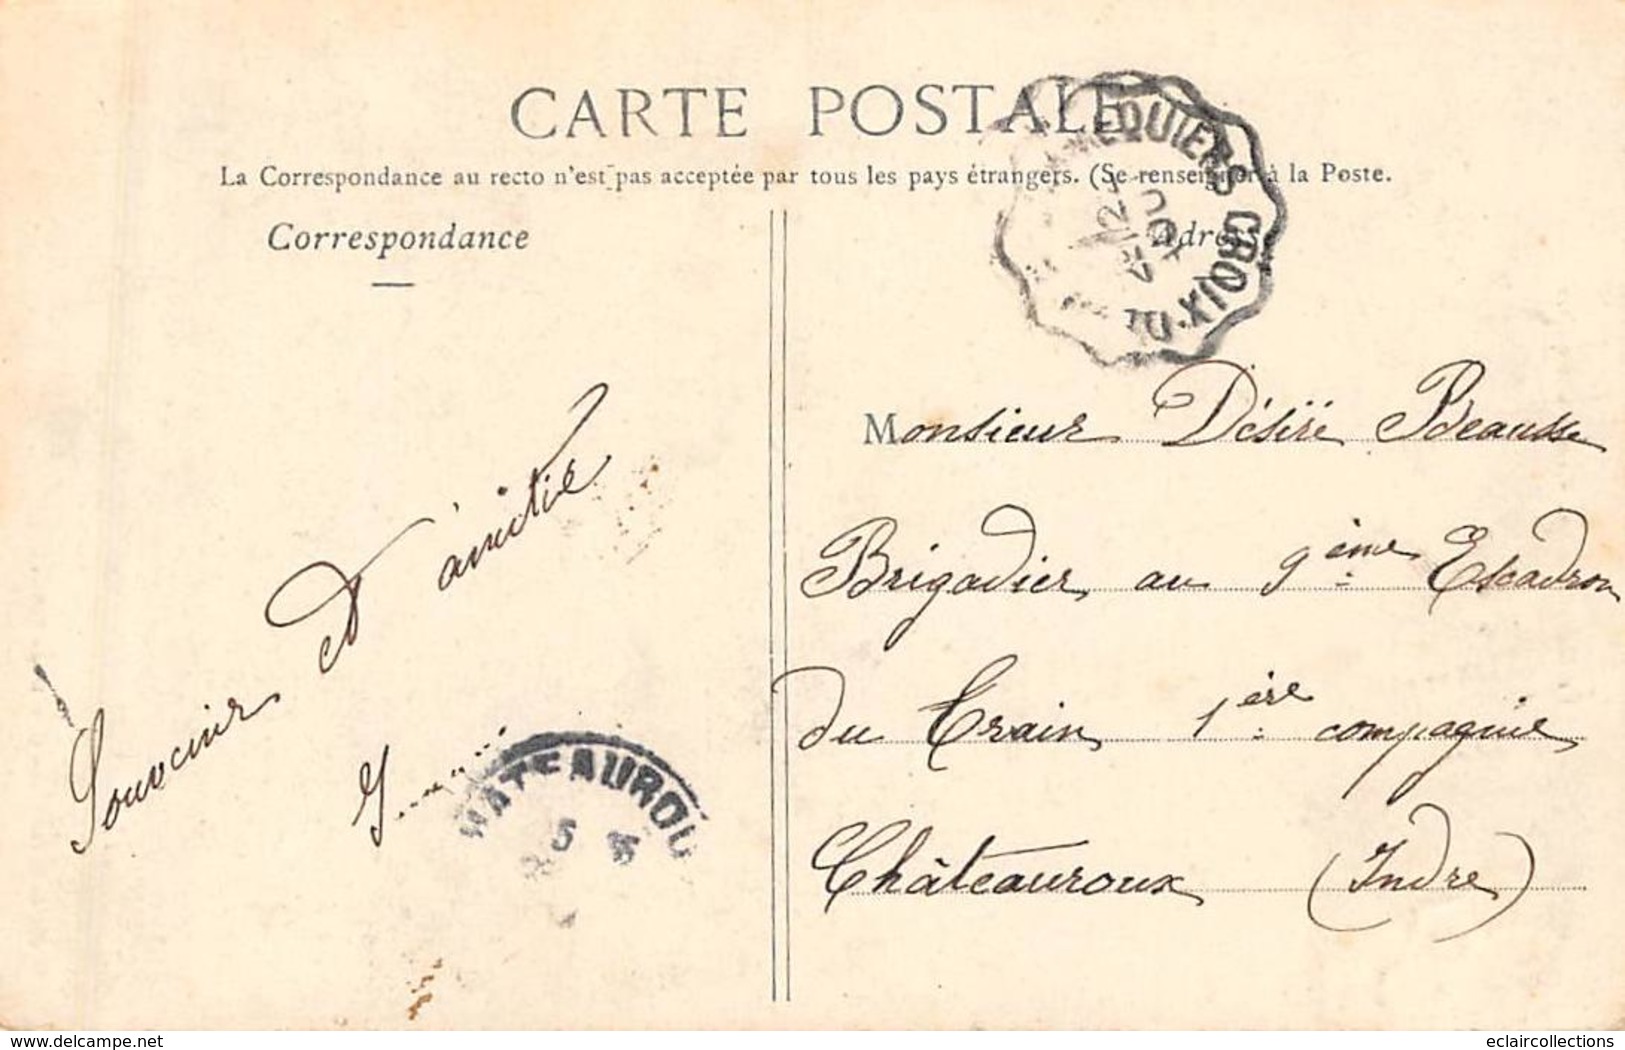 CARTE POSTALE
La Correspondance au recto n'est pas acceptée par tous les pays étrangers. (Se renseigner à la Poste.
Correspondance
Adresse
Souvenir d'amitié
CHATEAUROUX
5
Monsieur Désiré Béausse
Brigadier au 9ème Escadron
du Train 1ère compagnie
Châteauroux (Indre)
delcampe.net
eclaircollections